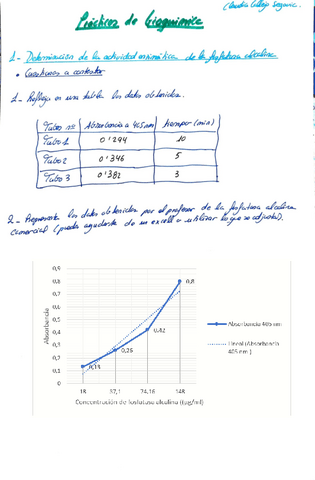 Prácticas de bioquímica
1- Determinación de la actividad enzimática de la fosfatasa alcalina
• Cuestiones a contestar
1- Refleja en una tabla los datos obtenidos.
Tubo nº Absorbancia a 405 nm tiempo (min)
Tubo 1 0'294 10
Tubo 2 0'346 5
Tubo 3 0'382 3
2- Representa los datos obtenidos por el profesor de la fosfatasa alcalina
comercial (puedes ayudarte de un excell o utilizar lo que se adjunta).
0,9
0,8
0,7
0,6
0,5
0,4
0,3
0,2
0,1
0
Absorbancia
0,13
0,26
0,42
0,8
18 37,1 74,16 148
Concentración de fosfatasa alcalina (µg/ml)
Absorbancia 405 nm
Lineal (Absorbancia
405 nm )